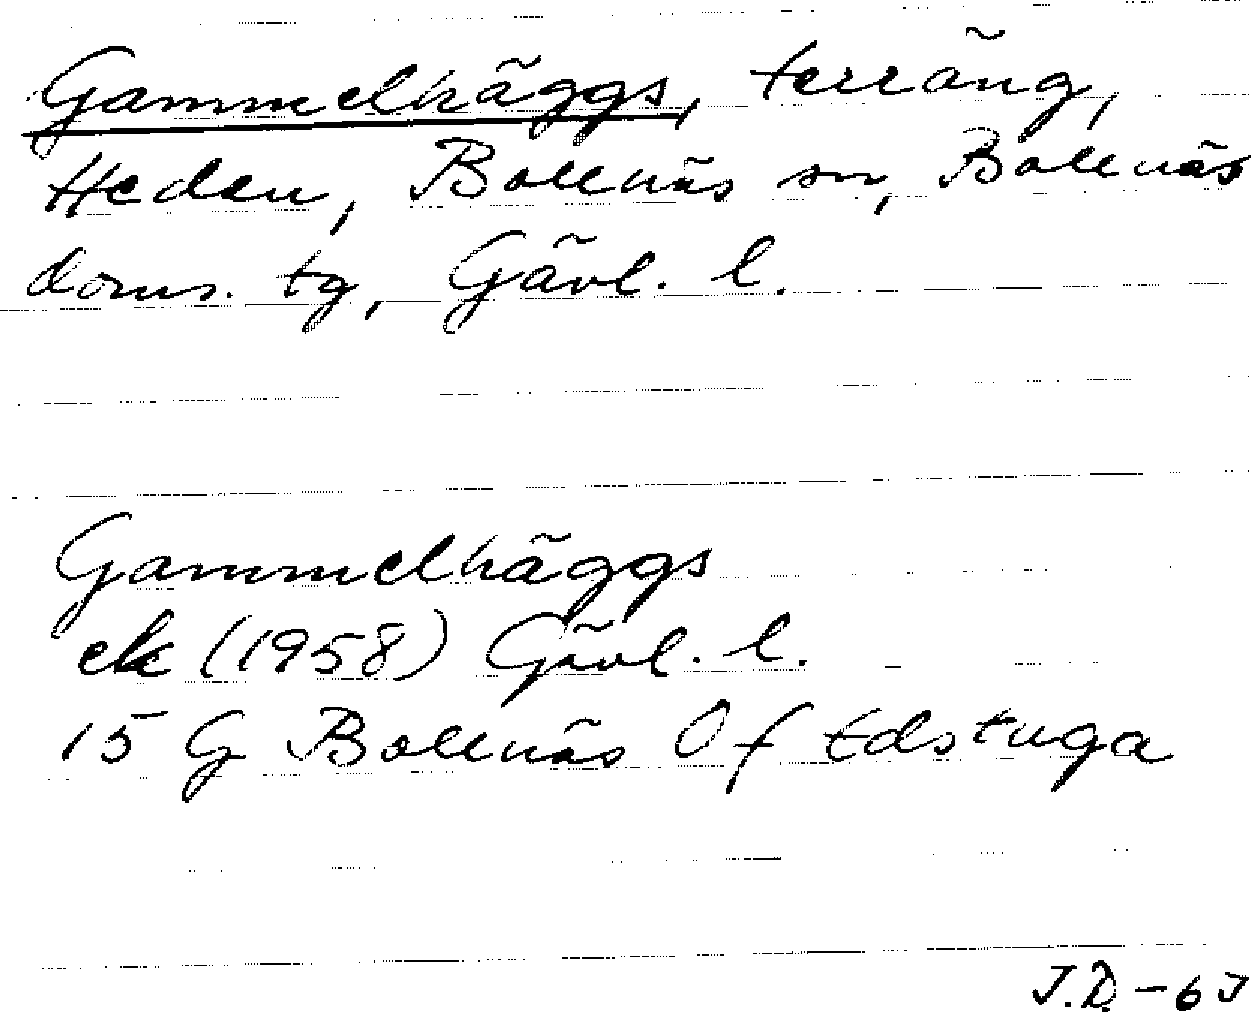 Gammelhäggs, terräng,
Heden, Bollnäs sn, Bollnäs
doms. tg, Gävl. l.
Gammelhäggs
ek (1958) Gävl. l.
15 G Bollnäs Of Edstuga
J.D. - 63